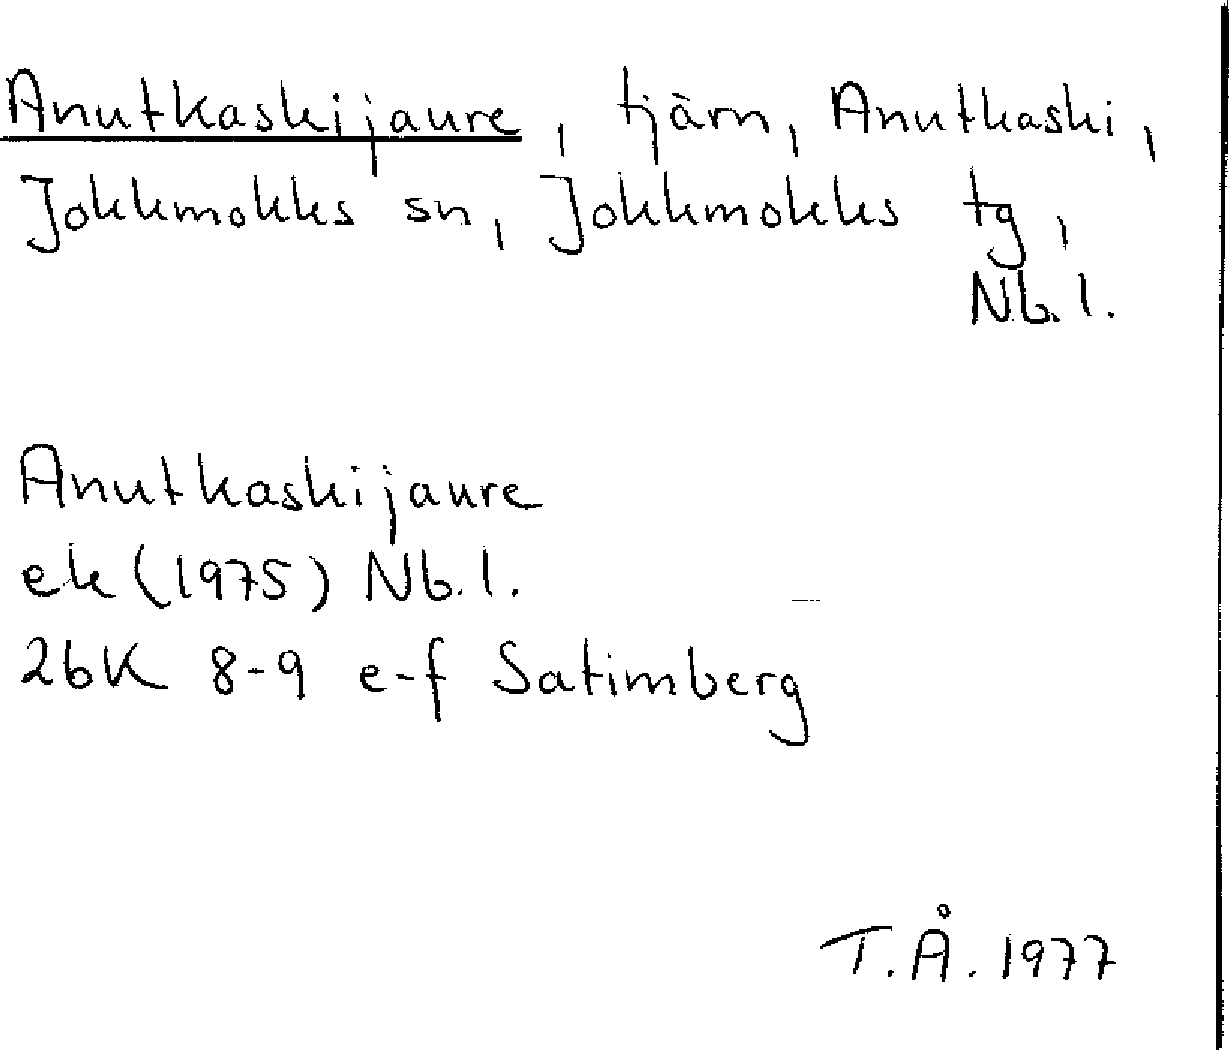 Anutkaskijaure, tjärn, Anutkaski,
Jokkmokks sn, Jokkmokks tg,
Nb.l.
Anutkaskijaure
ek (1975) Nb.l.
26K 8-9 e-f Satimberg
T.Å. 1977